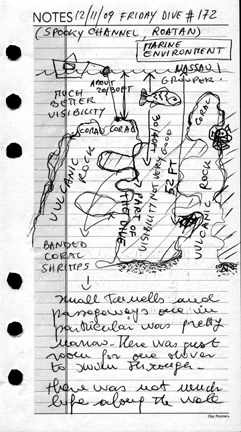 NOTES 12/11/09 FRIDAY DIVE # 172
(SPOOKY CHANNEL, ROATAN)
MARINE
ENVIRONMENT
NASSAU
GROUPER
ABOUT
20/30FT
MUCH
BETTER
VISIBILITY
CORAL
CORAL
CORAL
VULCANIC
ROCK
PART OF
THE DIVE
VISIBILITY NOT VERY GOOD
52 FT
VULCANIC
ROCK
BANDED
CORAL
SHRIMPS
Small Tunnells and
passageways one in
particular was pretty
narrow. There was just
room for one diver
to swim through.
there was not much
life along the wall
Day Runner